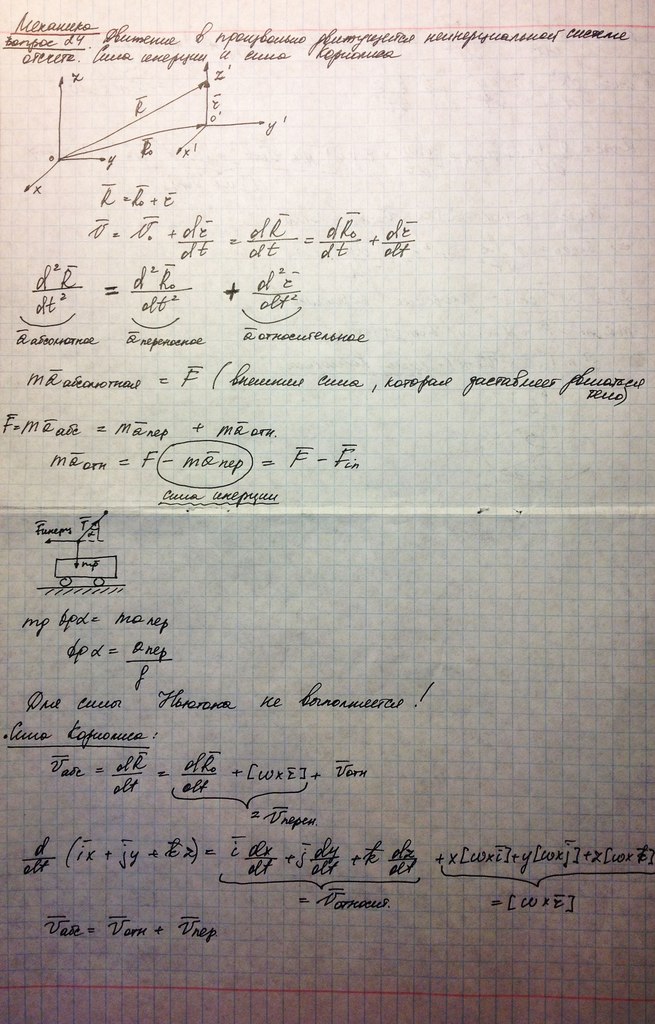 Механика
вопрос 24. Движение в произвольно движущейся неинерциальной системе
отсчета. Сила инерции и сила Кориолиса
z z'
R̄ r̄
0 R̄₀ 0' y'
y x'
x
R̄ = R̄₀ + r̄
v̄ = v̄₀ + dr̄/dt = dR̄/dt = dR̄₀/dt + dr̄/dt
d²R̄/dt² = d²R̄₀/dt² + d²r̄/dt²
ā абсолютное ā переносное ā относительное
mā абсолютная = F̄ (внешняя сила, которая заставляет двигаться
тело)
F̄ = mā абс = mā пер + mā отн.
mā отн = F - mā пер = F̄ - F̄in
сила инерции
F̄инерц T̄ α
mḡ
mg tg α = ma пер
tg α = a пер / g
Для силы Ньютона не выполняется!
• Сила Кориолиса:
v̄ абс = dR̄/dt = dR̄₀/dt + [ω×r̄] + v̄ отн
= v̄ перен.
d/dt (īx + j̄y + k̄z) = ī dx/dt + j̄ dy/dt + k̄ dz/dt + x[ω×ī] + y[ω×j̄] + z[ω×k̄]
= v̄ относит. = [ω×r̄]
v̄ абс = v̄ отн + v̄ пер.